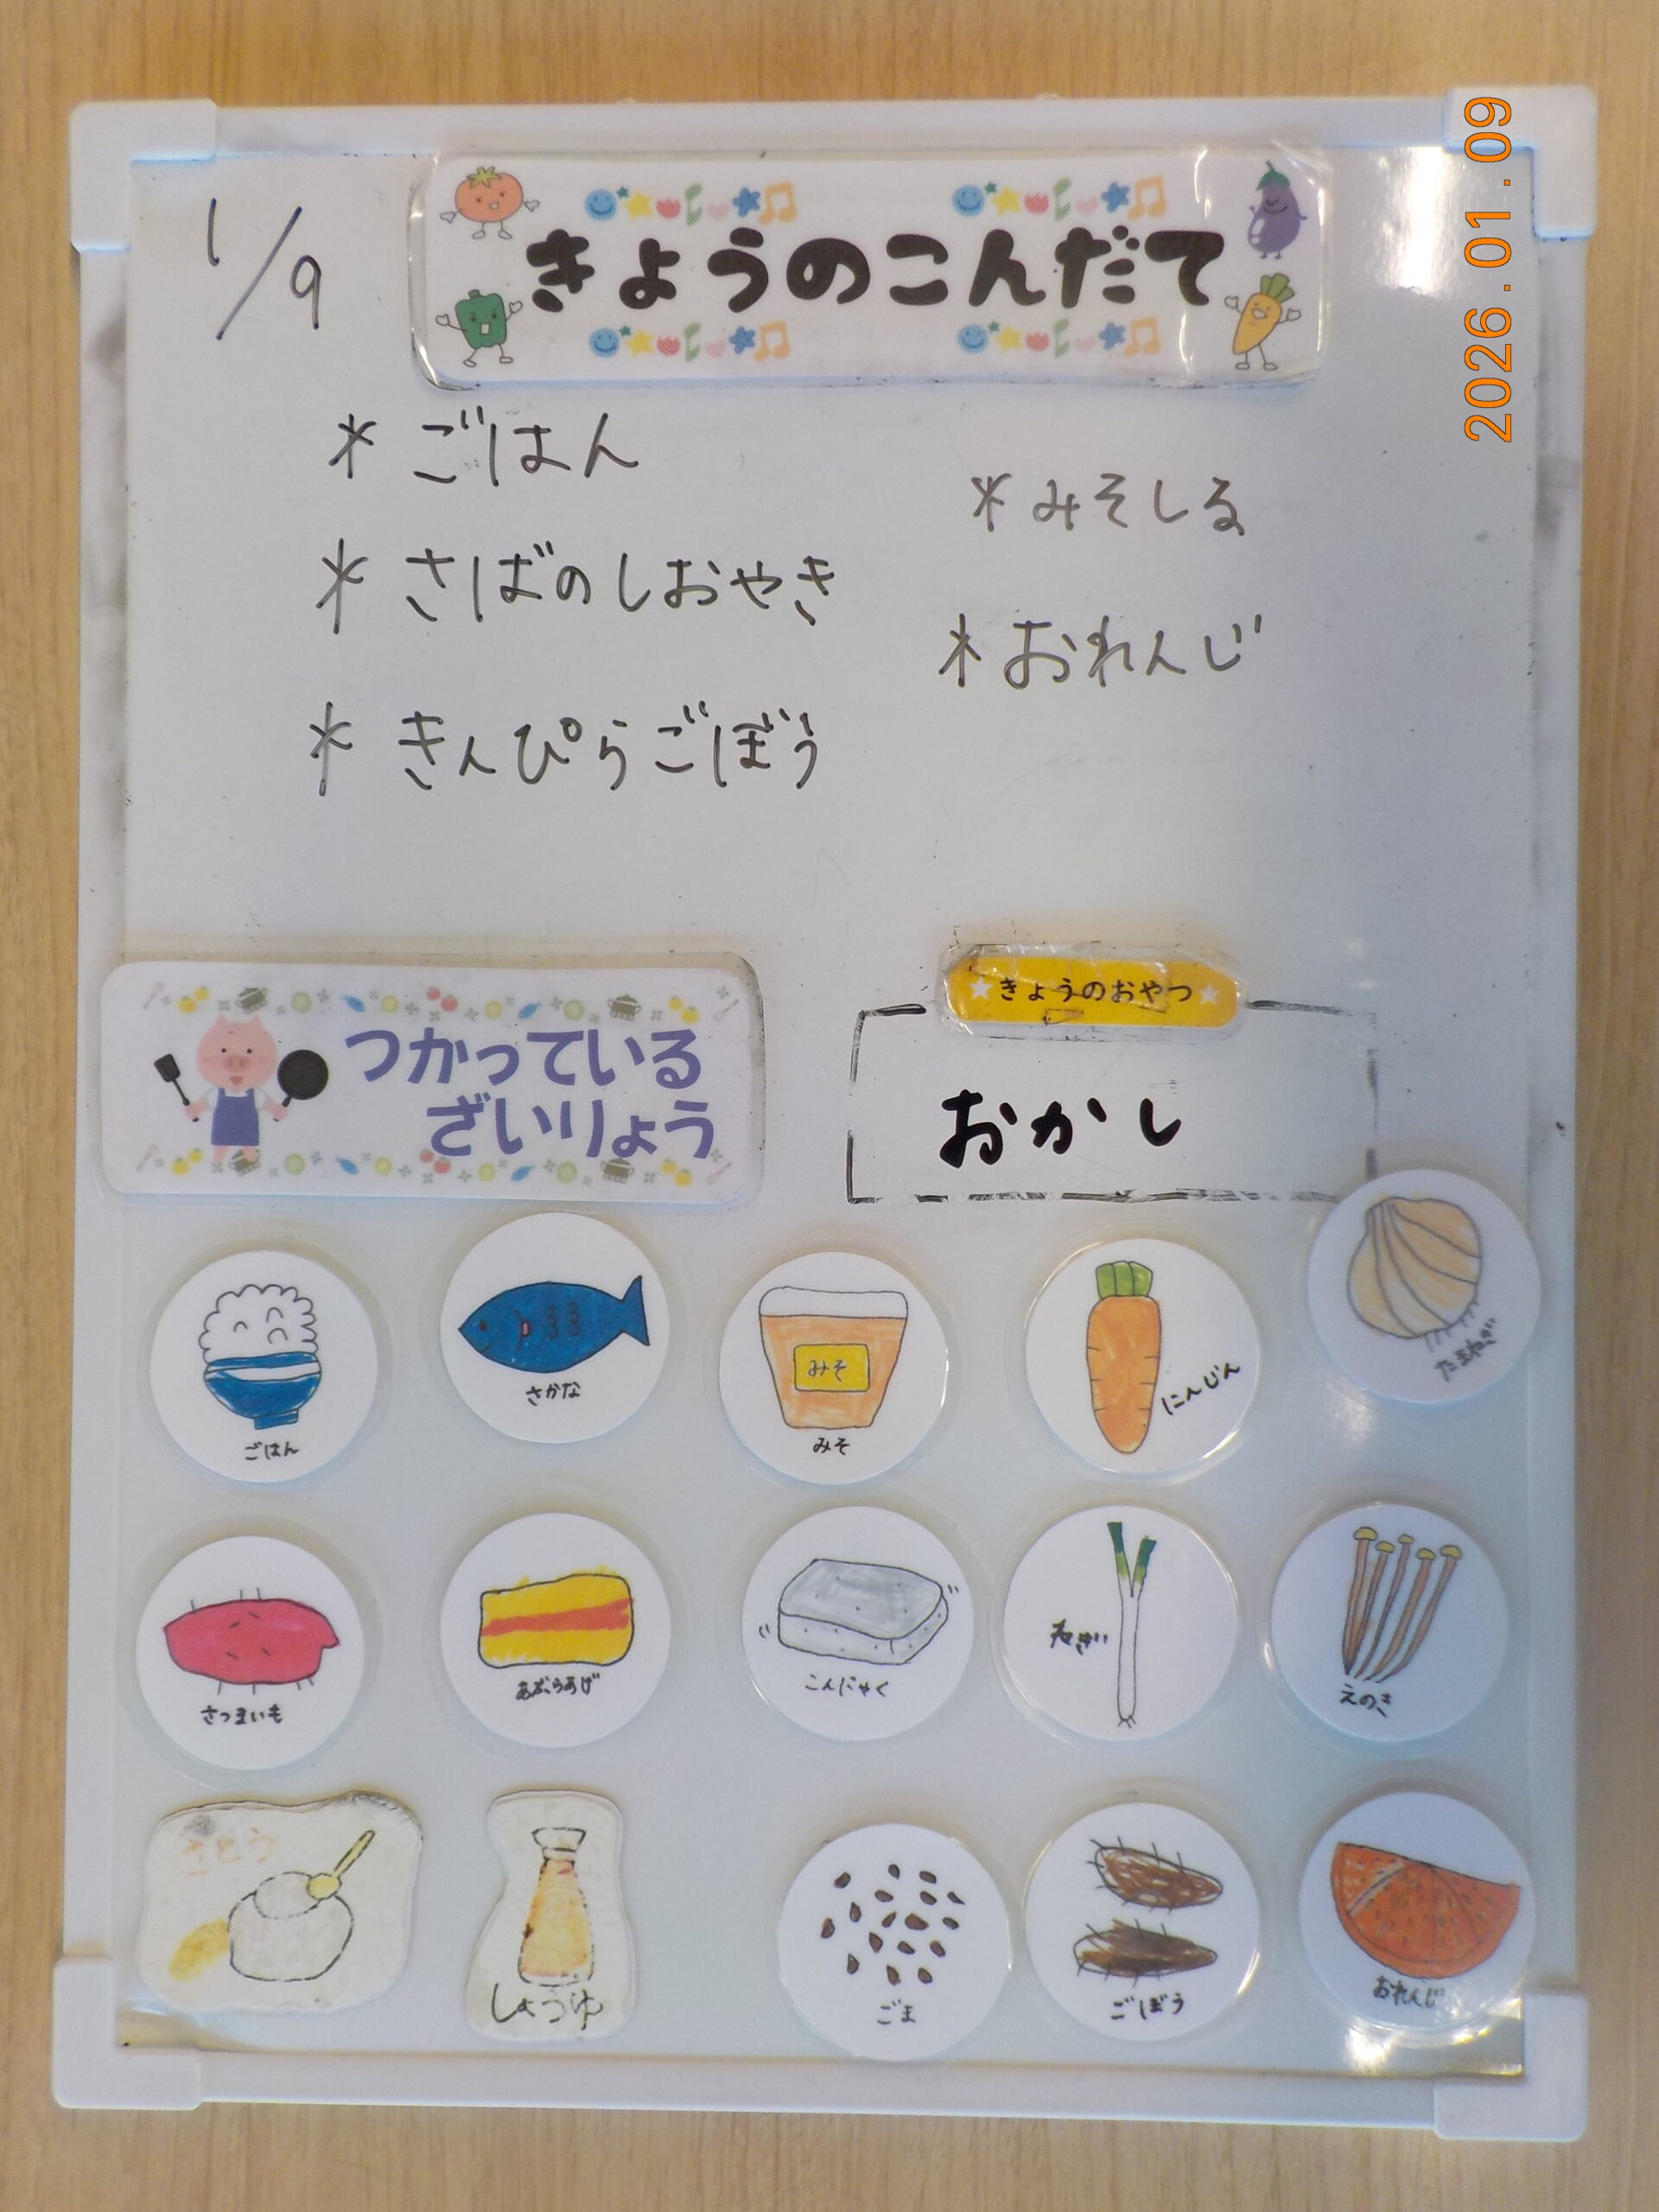 1/9
きょうのこんだて
2026.01.09
* ごはん
* さばのしおやき
* きんぴらごぼう
* みそしる
* おれんじ
つかっている
ざいりょう
★きょうのおやつ★
おかし
ごはん
さかな
みそ
みそ
にんじん
たまねぎ
さつまいも
あぶらあげ
こんにゃく
ねぎ
えのき
さとう
しょうゆ
ごま
ごぼう
おれんじ